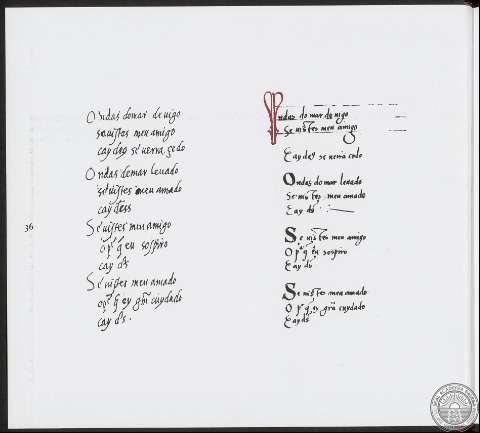 Ondas do mar de uigo
se uistes meu amigo
cay d͂s se uerra çedo
Ondas do mar leuado
se uistes meu amado
cay d͂s
36
Se uistes meu amigo
o p̃ q̃ eu sospiro
cay d͂s
Se uistes meu amado
o p̃ q̃ ey grã cuydado
cay d͂s.
Ondas do mar de uigo
Se uistes meu amigo
Cay d͂s se uerra cedo
Ondas do mar leuado
Se uistes meu amado
Cay d͂s
Se uistes meu amigo
O p̃ q̃ eu sospiro
Cay d͂s
Se uistes meu amado
O p̃ q̃ ey grã cuydado
Cay d͂s